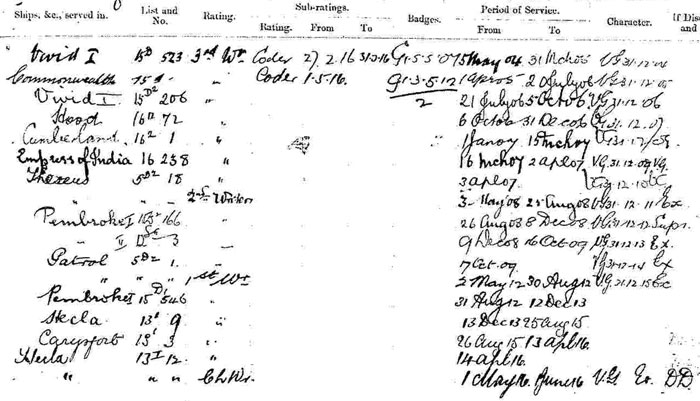 Ships, &c., served in. List and No. Rating. Sub-ratings. Badges. Period of Service. Character. If Dis
Rating. From To From To and
Vivid I 15D 523 3rd Wr Coder 27.2.16 31.3.16 G1.5.5.07 15 May 04 31 Mch 05 VG 31.12.04
Commonwealth 15 " Coder 1.5.16. G1.3.5.12 1 Apr 05 20 July 06 VG 31.12.05
Vivid I 15D2 206 " 2 21 July 06 5 Octo 06 VG 31.12.06
Hood 16 72 6 Octo 06 31 Dec 06 31.12.07
Cumberland 16 1 " 1 Jan 07 15 Mch 07 VG 31.12
Empress of India 16 238 " 16 Mch 07 2 Apl 07 VG 31.12.09 VG.
Theseus 5D2 18 " 3 Apl 07 31.12.10
" " 2nd Writer 3 May 08 25 Aug 08 VG 31.12.11 Ex
Pembroke I 166 26 Aug 08 8 Dec 08 VG 31.12.12 Supr.
" II 3 9 Dec 08 16 Oct 09 VG 31.12.13 Ex.
Patrol 5D2 1. 17 Oct 09 VG 31.12.14 Ex
" " " 1st Wr 2 May 12 30 Aug 12 VG 31.12.15 Ex
Pembroke I 15D 546 " 31 Aug 12 12 Dec 13
Hecla 13 9 " 13 Dec 13 25 Aug 15
Carysfort 15 3 " 26 Aug 15 13 Apl 16
Hecla 13I 12 " 14 Apl 16.
" " " Ch Wr. 1 May 16 June 16 V.G. Ex. DD.